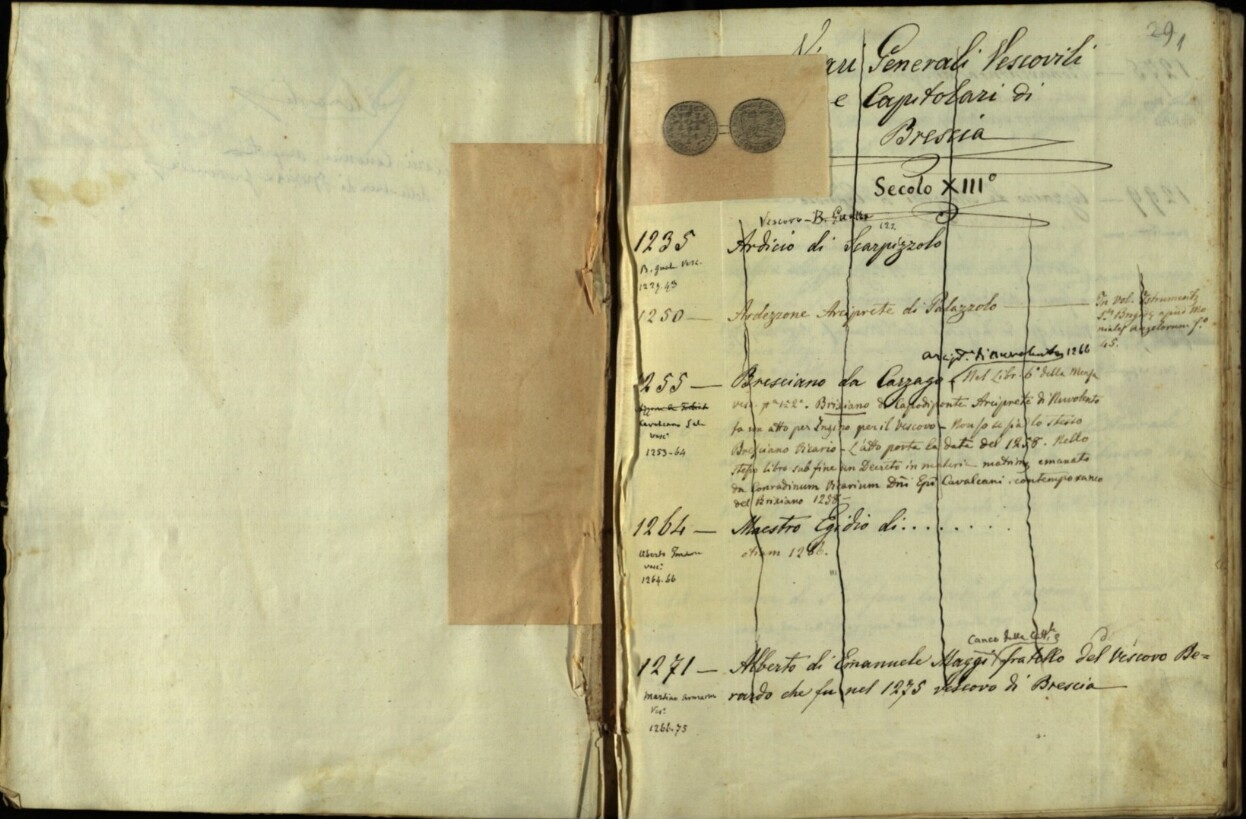 29
Vicari Generali Vescovili
e Capitolari di
Brescia
Secolo XIII°
Vescovo - B.
1235
Ardicio di Scarpizzolo
B. Vesc.
1250 — Ardezzone Arciprete di Palazzolo
In vol.
45.
1266
1255 — Bresciano da Cazzago Nel Libr. 6° della Mensa
vesc. Brixiano de Capodiponte Arciprete di Nuvolento
fa un atto per Ingino per il Vescovo - Non so se sia lo stesso
Bresciano Vicario - L'atto porta la data del 1258. Nello
stesso libro sub fine un Decreto in materia emanato
da Conradinum Vicarium Dni Epi Cavalcani contemporaneo
del Brixiano 1258 —
Cavalcano Sala
Vesc°
1253-64
1264 — Maestro Egidio di........
etiam 1266.
Vesc°
1264.66
Canco della Catt.
1271 — Alberto di Emanuele Maggi fratello del Vescovo Be=
rardo che fu nel 1275 vescovo di Brescia
Martino
1266-75